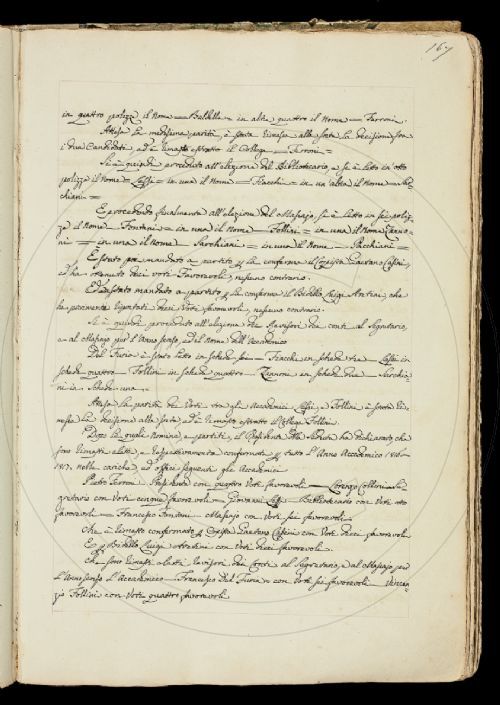 167
in quattro polizze il nome = Baldelli = in altre quattro il nome = Ferroni.
Attesa la medesima parità, è stata rimessa alla sorte la decisione fra
i due Candidati, ed è rimasto estratto il Collega = Ferroni =
Si è quindi proceduto all'elezione del Bibliotecario, e si è letto in otto
polizze il nome = Lessi = in una il nome = Fiacchi = in un'altra il nome =
chiani =
E procedendo finalmente all'elezione del Massajo, si è letto in sei poliz-
ze il nome = Fontani = in una il nome = Follini = in una il nome Zanno-
ni = in una il nome = Sarchiani = in una il nome = Fiacchiani =
È stato poi mandato a partito per la conferma il Copista Gaetano Cassini,
ed ha ottenuto dieci voti favorevoli, nessuno contrario.
Ed è stato mandato a partito per la conferma il Bidello Luigi, che
ha parimente riportati dieci voti favorevoli, nessuno contrario.
Si è quindi proceduto all'elezione dei Revisori dei conti al Segretario,
e al Massajo per l'Anno scorso, ed il nome dell'Accademico
Del Furia è stato letto in schede sei = Fiacchi in schede tre = Lessi in
schede quattro = Follini in schede quattro = Zannoni in schede due = Sarchia-
ni in schede una =
Attesa la parità dei voti tra gli Accademici Lessi, e Follini è stata ri-
messa la decisione alla sorte, ed è rimasto estratto il Collega Follini.
Dopo le quali nomine, e partiti, il Presidente della seduta ha dichiarato, che
sono rimasti eletti, e respettivamente confermati per tutto l'Anno Accademico 1816-
1817. nelle cariche, ed offici seguenti gli Accademici
Pietro Ferroni = Presidente con quattro voti favorevoli = Lorenzo Collini = Se-
gretario con voti cinque favorevoli = Giovanni Lessi = Bibliotecario con voti otto
favorevoli = Francesco Fontani = Massajo con voti sei favorevoli.
Che è rimasto confermato per Copista Gaetano Cassini con voti dieci favorevoli
E per Bidello Luigi con voti dieci favorevoli.
Che sono rimasti eletti Revisori dei Conti al Segretario, e al Massajo per
l'Anno scorso l'Accademico = Francesco Del Furia = con voti sei favorevoli = Vincen-
zio Follini con voti quattro favorevoli